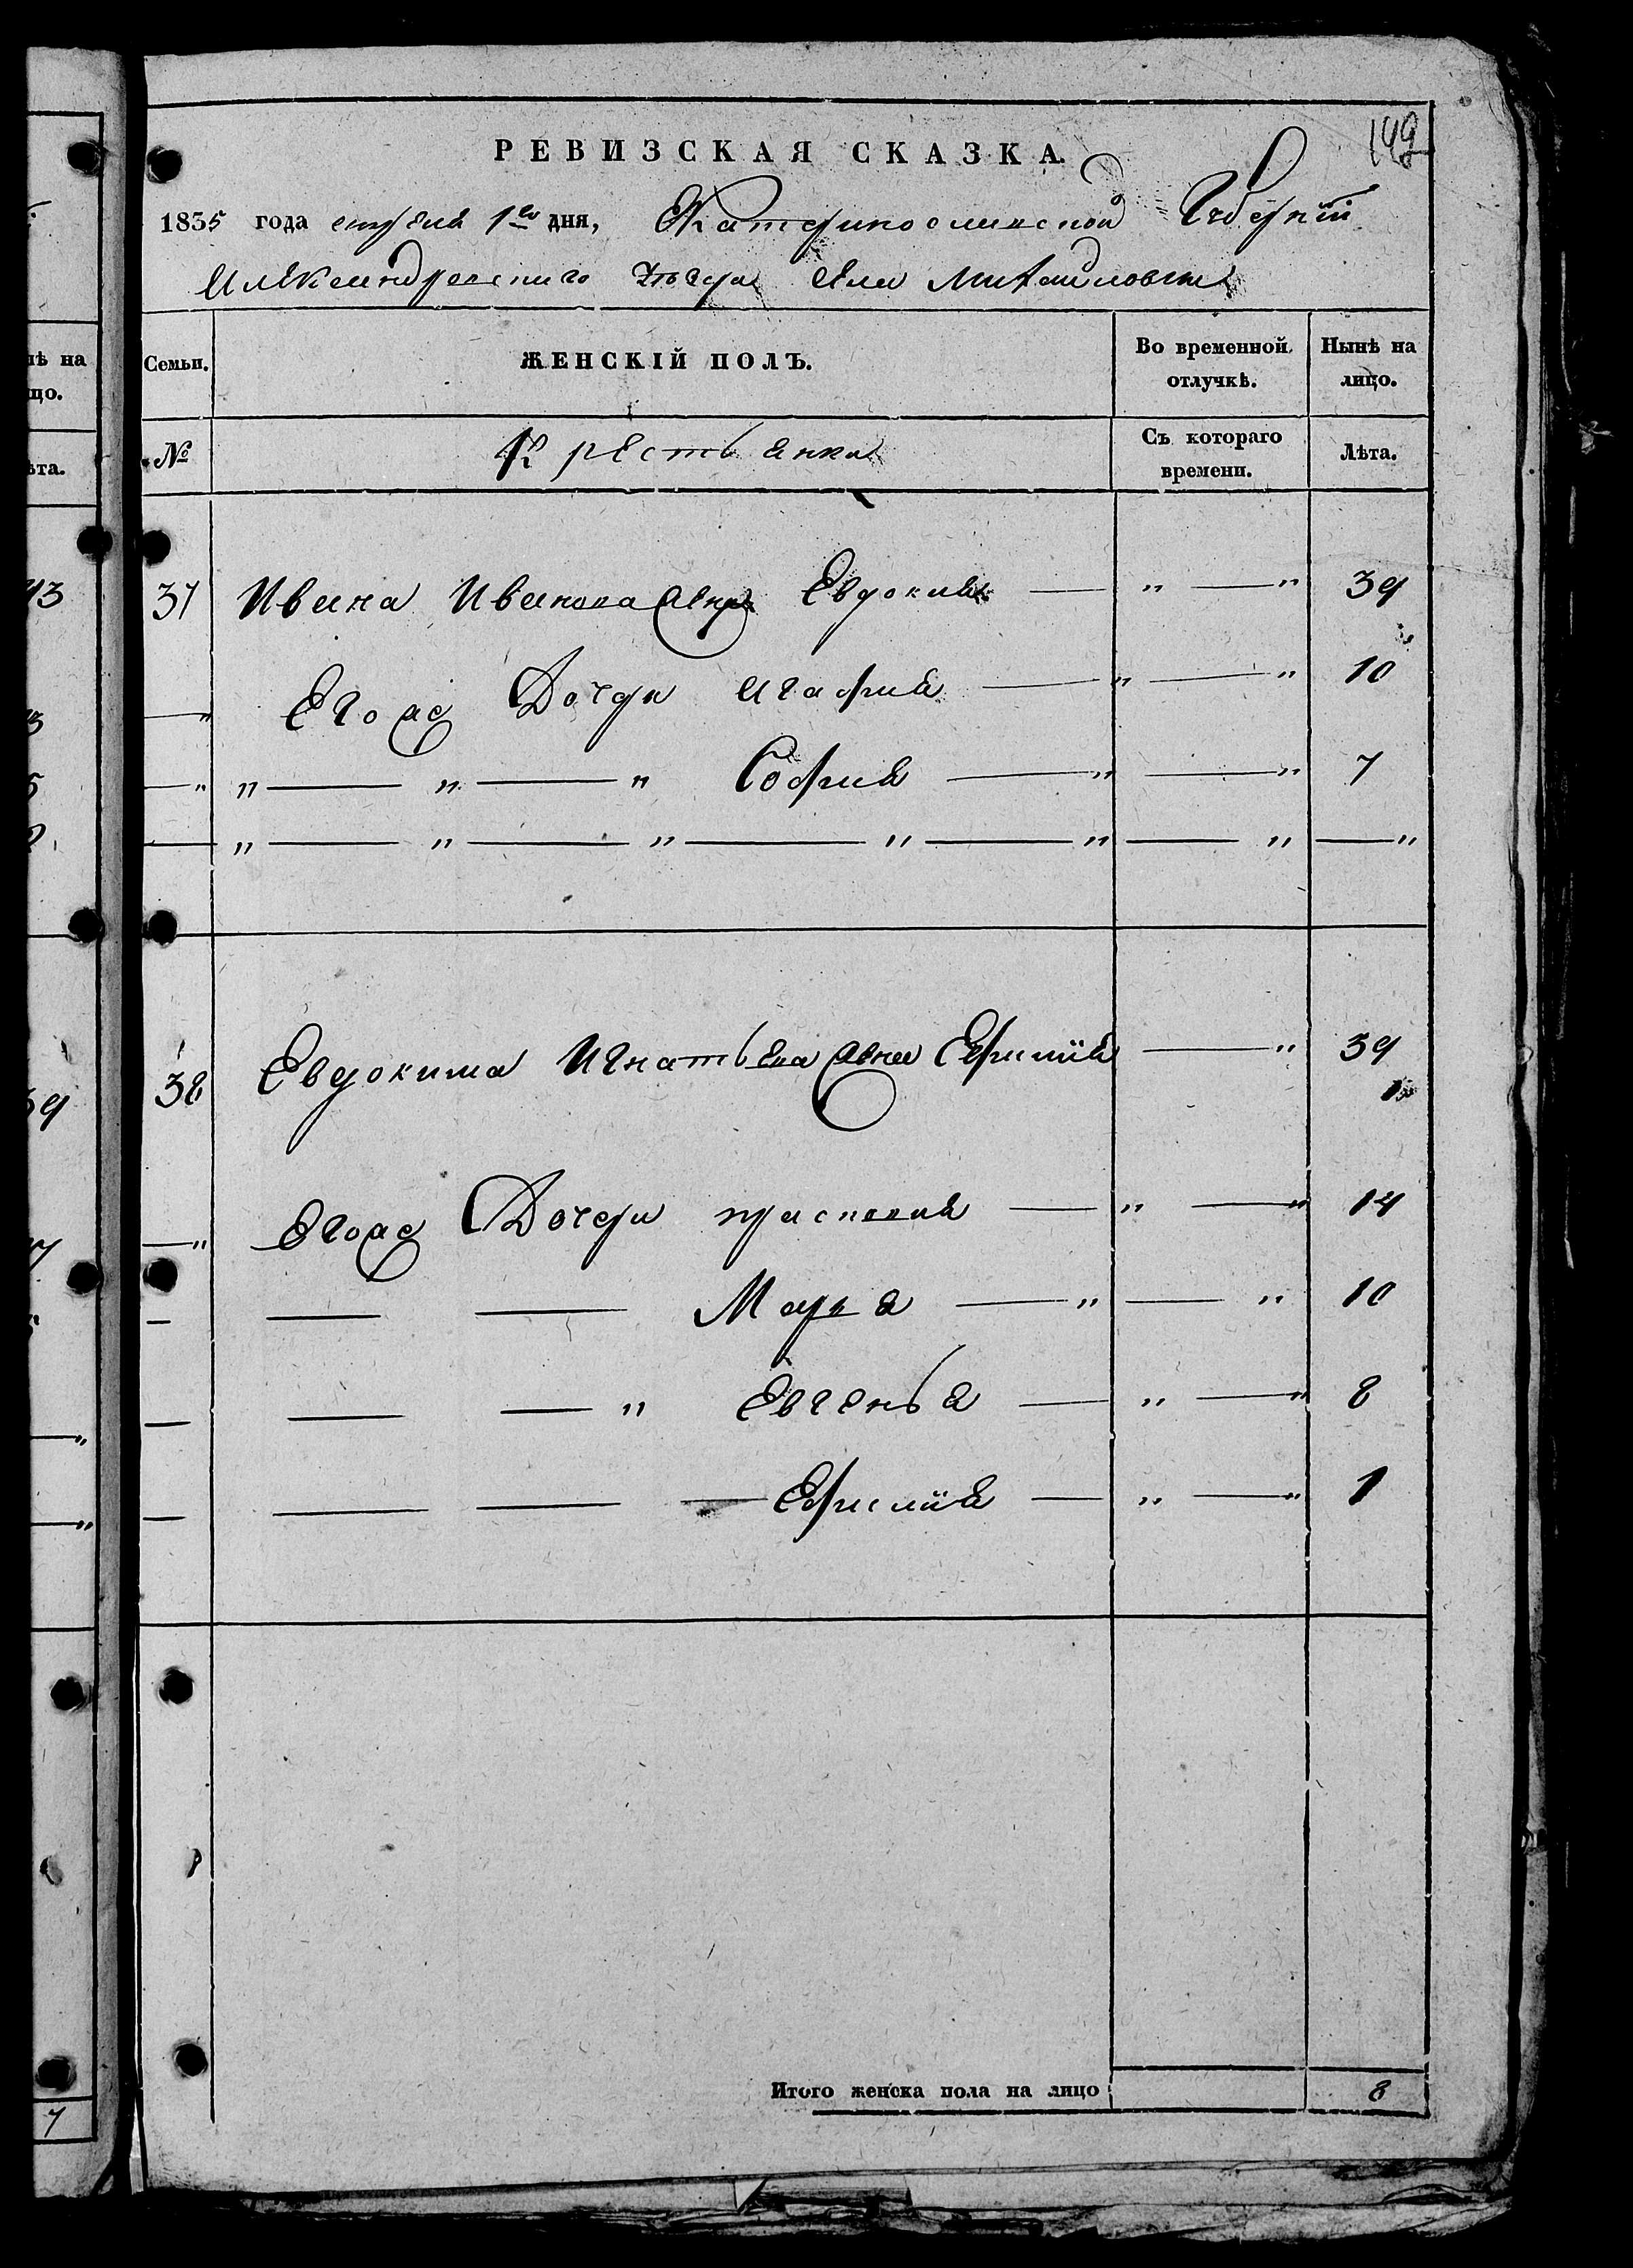 142
РЕВИЗСКАЯ СКАЗКА.
1835 года апреля 1го дня, Екатеринославской Губерніи
Александровского уезда села Михайловки
Семьи. ЖЕНСКІЙ ПОЛЪ. Во временной отлучкѣ. Нынѣ на лицо.
№ Крестьянки Съ котораго времени. Лѣта.
37 Ивана Иванова жена Евдокия — " — " 39
— " Егоже Дочери Агафия — " — " 10
— " " — " — " София — " — " 7
— " — " — " — " — " — " — "
38 Евдокима Игнатьева жена Ефимія — " 39
— " Егоже Дочери прасковия — " — " 14
— — — Марья — " — " 10
— — — " Евгенья — " — " 8
— — — — Ефимія — " — " 1
Итого женска пола на лицо 8
нѣ на
цо.
ѣта.
43
59
7